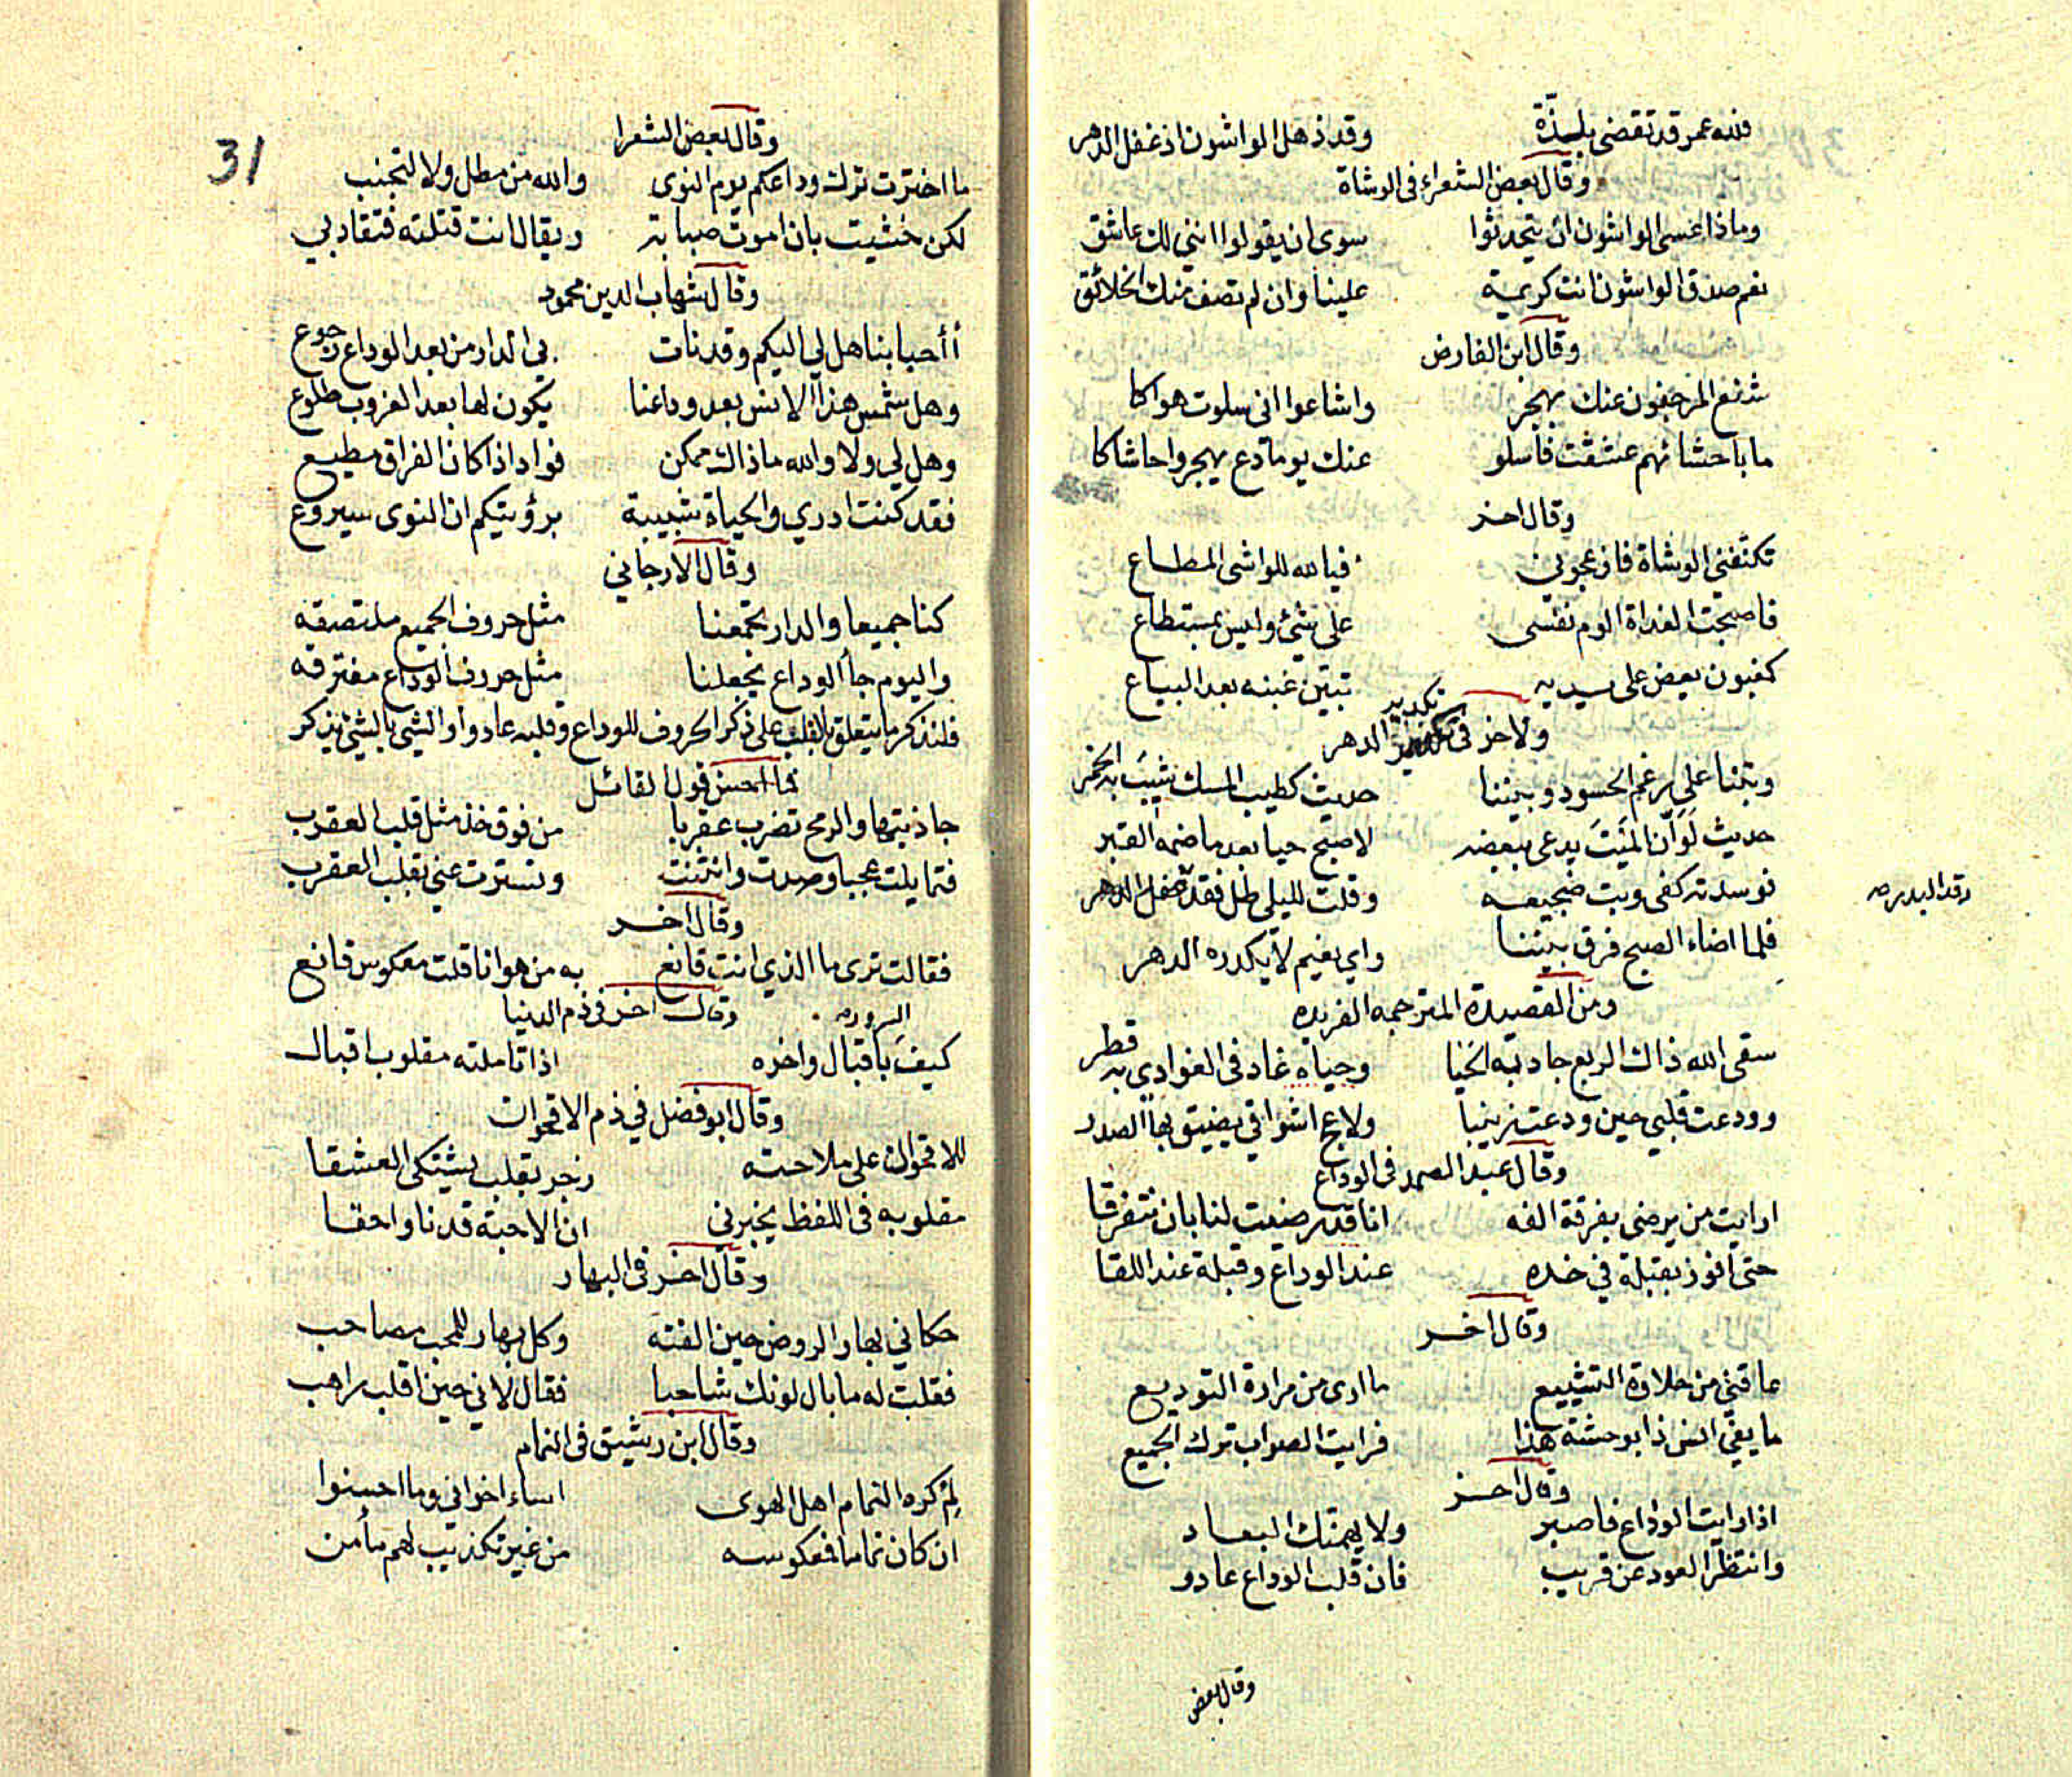 فلله عمر قد تقضى بلذة وقد ذهل الواشون اذ غفل الدهر
وقال بعض الشعراء فى الوشاة
وماذا عسى الواشون ان يتحدثوا سوى ان يقولوا اننى لك عاشق
نعم صدق الواشون انت كريمة علينا وان لم تصف منك الخلائق
وقال ابن الفارض
شنع المرجفون عنك بهجر واشاعوا انى سلوت هواكا
ما باحشائهم عشقت فاسلو عنك يوما دع يهجروا حاشاكا
وقال اخر
تكنفنى الوشاة فازعجونى فيا لله للواشى المطاع
فاصبحت الغداة الوم نفسى على شئ وليس بمستطاع
كمغبون يعض على يديه تبين غبنه بعد البياع
ولاخر فى تكدير الدهر
وبتنا على رغم الحسود وبيننا حديث كطيب المسك شيب به الخمر
حديث لو ان الميت يدعى ببعضه لاصبح حيا بعد ما ضمه القبر
فوسدته كفى وبت ضجيعه وقلت لليلى طل فقد غفل الدهر
رقد البدر صه
فلما اضاء الصبح فرق بيننا واي نعيم لا يكدره الدهر
ومن القصيدة المترجمه الفريده
سقى الله ذاك الربع جادته الحيا وحياه غاد فى الغوادي به قطر
وودعت قلبي حين ودعت زينبا ولاعج اشواقي يضيق بها الصدر
وقال عبد الصمد فى الوداع
ارايت من يرضى بفرقة الفه انا قد رضيت لنا بان نتفرقا
حتى افوز بقبلة في خده عند الوداع وقبلة عند اللقا
وقال اخر
عاقنى من حلاوة التشييع ما ارى من مرارة التوديع
ما يفى انس ذا بوحشة هذا فرايت الصواب ترك الجميع
وقال اخر
اذا رايت الوداع فاصبر ولا يهمنك البعاد
وانتظر العود عن قريب فان قلب الوداع عادو
وقال بعض
31
وقال بعض الشعرا
ما اخترت ترك وداعكم يوم النوى والله من مطل ولا لتجنب
لكن خشيت بان اموت صبابة ويقال انت قتلته فتقاد بي
وقال شهاب الدين محمود
أأحبابنا هل لي اليكم وقد نات بي الدار من بعد الوداع رجوع
وهل شمس هذا الانس بعد وداعنا يكون لها بعد الغروب طلوع
وهل لي ولا والله ما ذاك ممكن فواد اذا كان الفراق مطيع
فقد كنت ادري والحياة شبيبة برؤيتكم ان النوى سيروع
وقال الارجاني
كنا جميعا والدار تجمعنا مثل حروف الجميع ملتصقه
واليوم جا الوداع يجعلنا مثل حروف الوداع مفترقه
فلنذكر ما يتعلق بالقلب على ذكر الحروف للوداع وقلبه عادوا والشي بالشئ يذكر
فما احسن قول القائل
جاذبتها والريح تضرب عقربا من فوق خد مثل قلب العقرب
فتمايلت عجبا وصدت وانثنت وتسترت عني بقلب العقرب
وقال اخر
فقالت ترى ما الذي انت قانع به من هوانا قلت معكوس قانع
وقال اخر فى ذم الدنيا
كيف باقبال واخره اذا تاملته مقلوب اقبال
وقال ابو فضل في ذم الاقحوان
للاقحوان على ملاحته زجر بقلب يشتكى العشقا
مقلوبه فى اللفظ يخبرني ان الاحبة قد ناوا حقا
وقال اخر فى البهار
حكاني بهار الروض حين الفته وكل بهار للمحب مصاحب
فقلت له ما بال لونك شاحبا فقال لاني حين اقلب راهب
وقال ابن رشيق فى النمام
لم كره النمام اهل الهوى اساء اخواني وما احسنوا
ان كان نماما فمعكوسه من غير تكذيب لهم مأمن